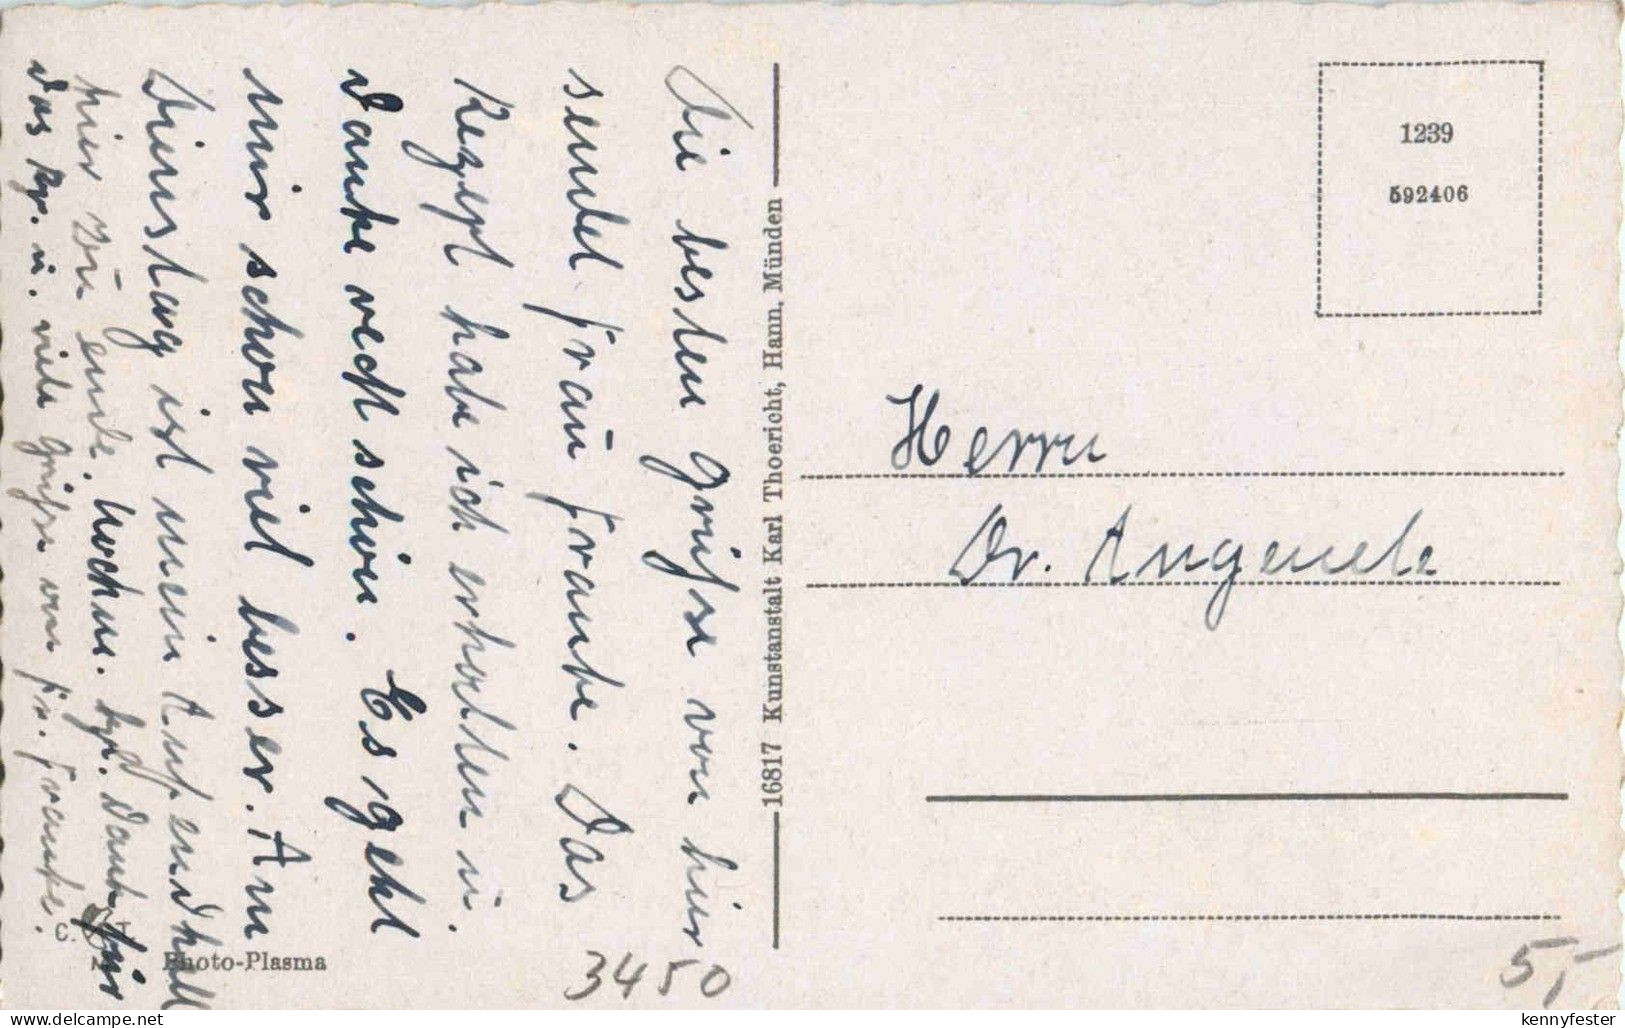 Die besten Grüße von hier
sendet Frau Franke. Das
Rezept habe ich erhalten u.
danke recht schön. Es geht
mir schon viel besser. Am
Dienstag ist mein Aufendhalt
hier zu ende. Nochm. Dank für
das u. viele Grüße von Fr. Franke.
C.
Photo-Plasma
3450
16817 Kunstanstalt Karl Thoericht, Hann. Münden
1239
592406
Herrn
Dr. Angenete
5,-
kennyfester